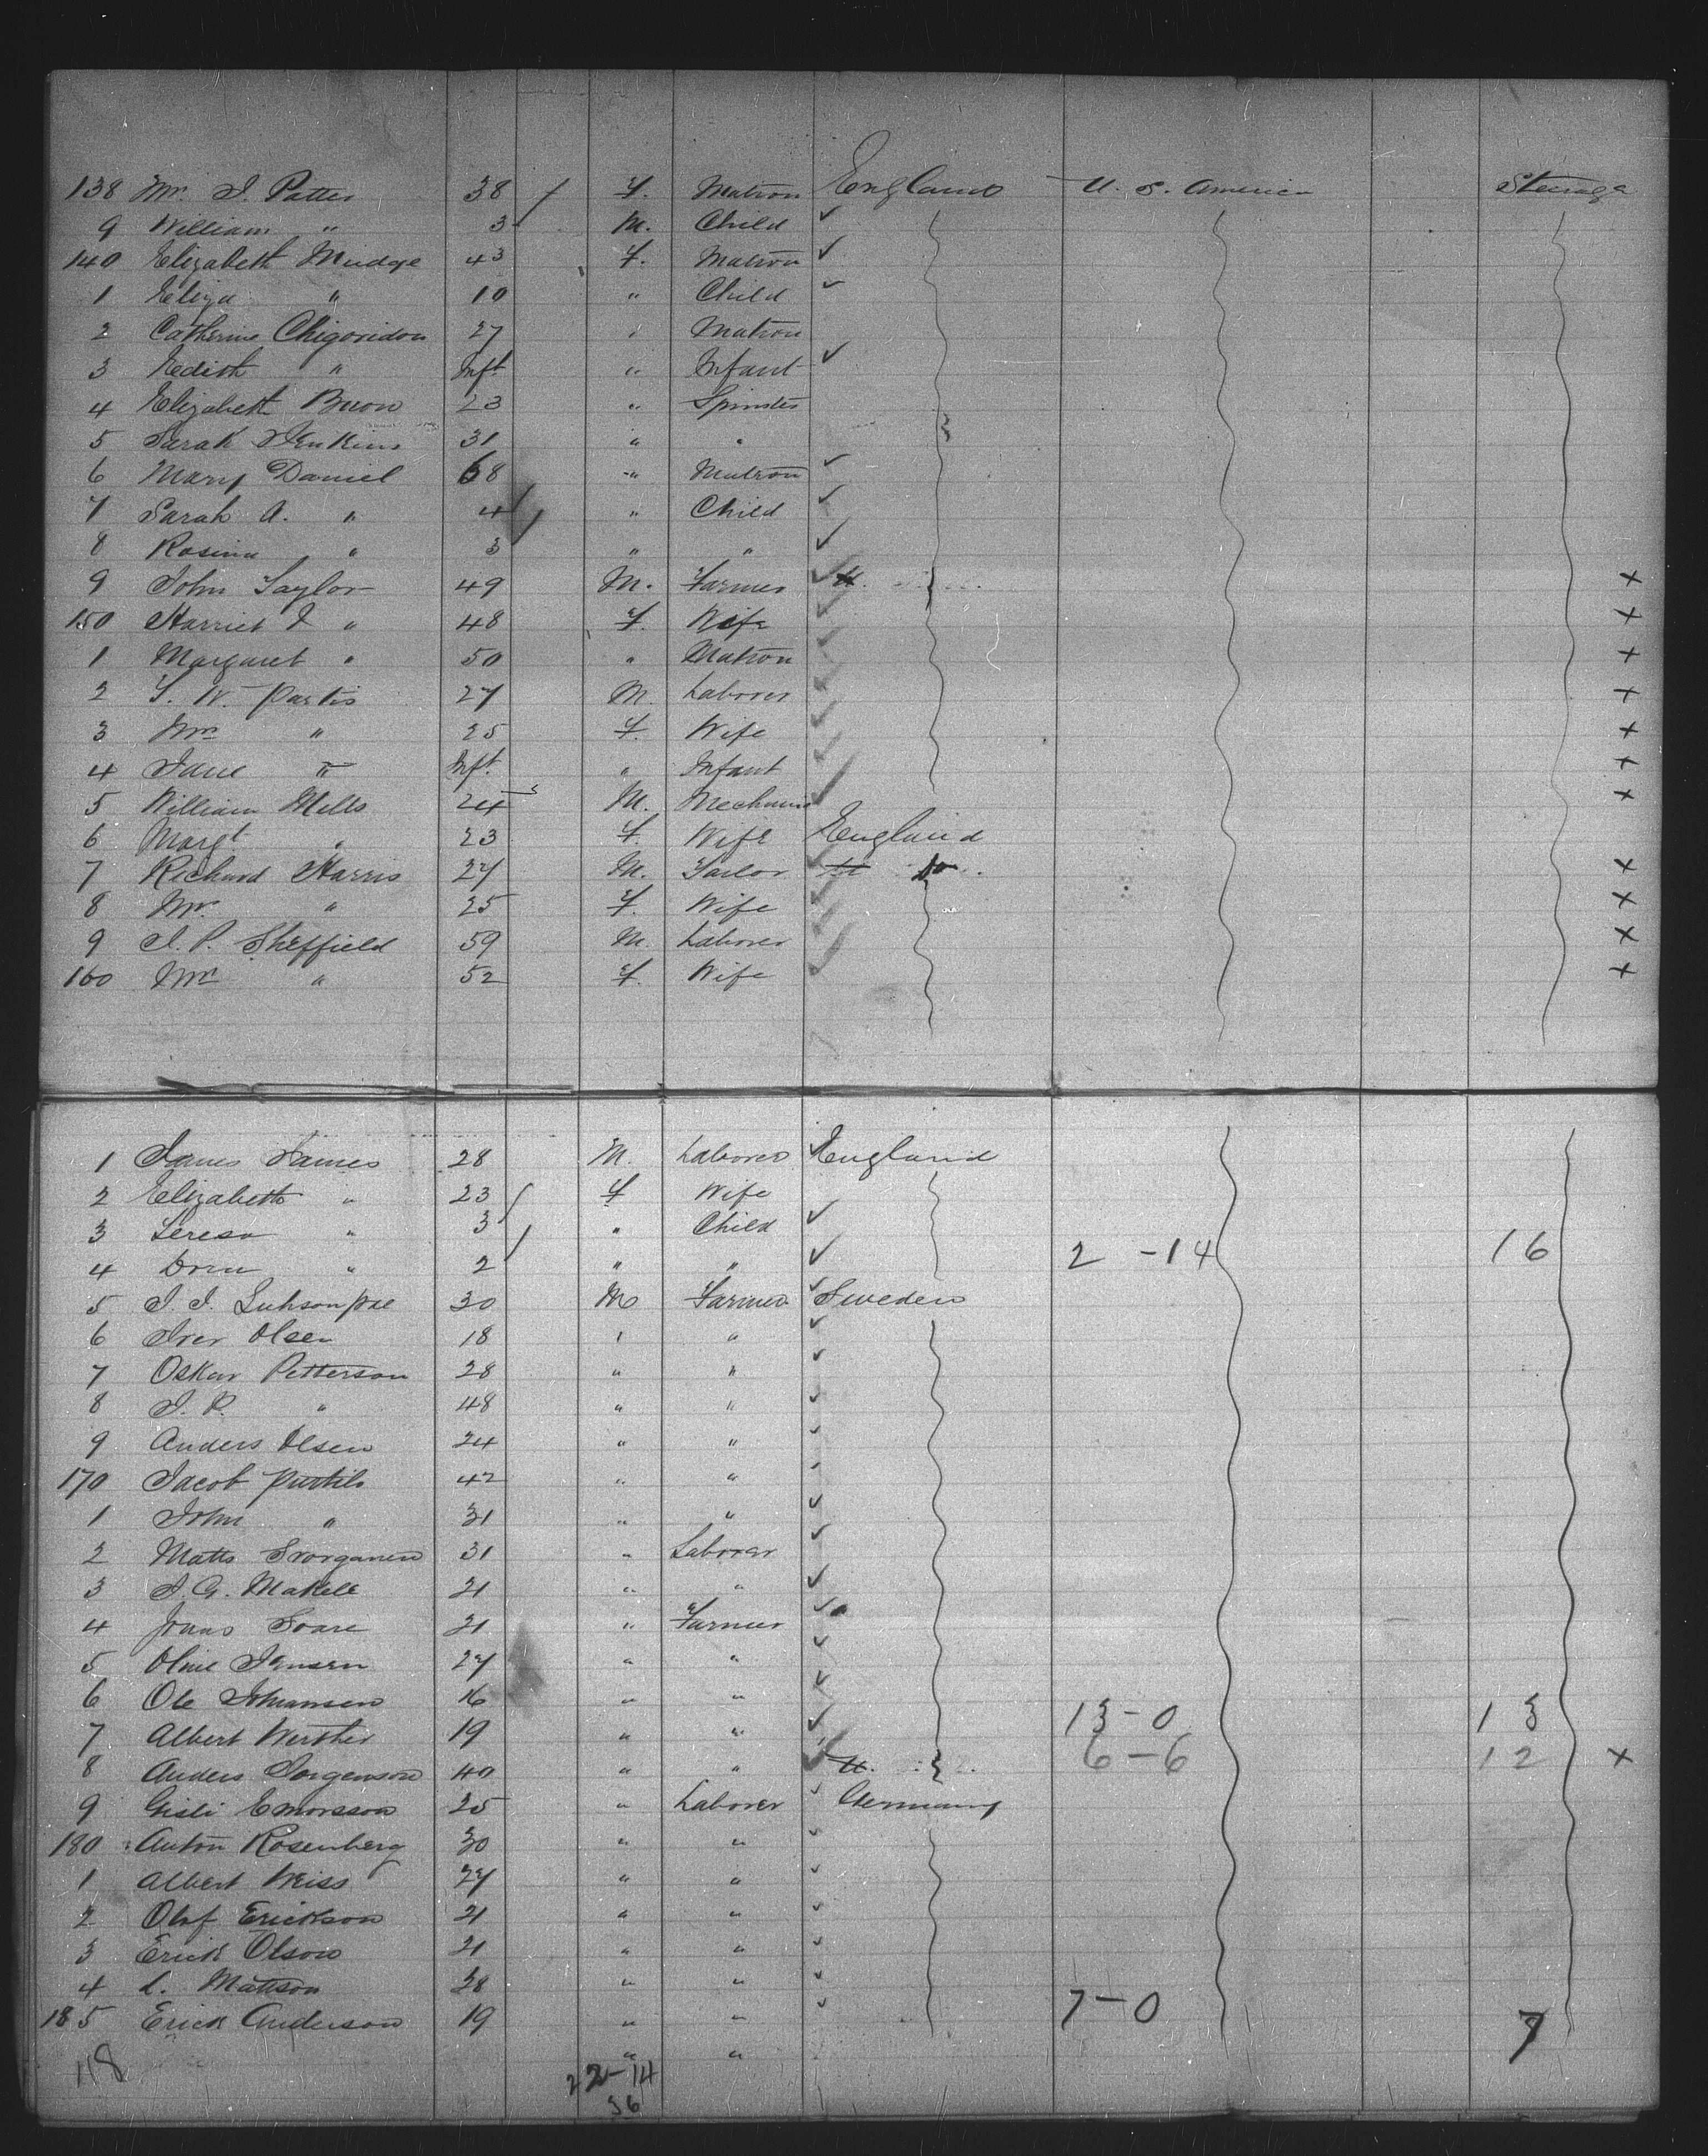 138 Mrs. J. Potter 38 F. Matron England U. S. America Steerage
9 William " 3 M. Child
140 Elizabeth Mudge 43 F. Matron
1 Eliza " 10 " Child
2 Catherine Chigoridon 27 " Matron
3 Edith " Inft " Infant
4 Elizabeth 23 " Spinster
5 Sarah Jenkins 31 " "
6 Mary Daniel 68 " Matron
7 Sarah A. " 4 " Child
8 Rosina " 3 " "
9 John Taylor 49 M. Farmer x
150 Harriet J " 48 F. Wife x
1 Margaret " 50 " Matron x
2 27 M. Laborer x
3 Mrs " 25 F. Wife x
4 Jane " Inft. " Infant x
5 William Mills 24 M. Mechanic x
6 Margt " 23 F. Wife England
7 Richard Harris 27 M. Tailor x
8 Mrs. " 25 F. Wife x
9 J. P. Sheffield 59 M. Laborer x
160 Mrs " 52 F. Wife x
1 James James 28 M. Laborer England
2 Elizabeth " 23 F Wife
3 Teresa " 3 " Child
4 " 2 " " 2 - 14 16
5 J. J. 30 M Farmer Sweden
6 Iver Olsen 18 " "
7 Oskar Petterson 28 " "
8 J. P. " 48 " "
9 Anders Olsen 24 " "
170 Jacob 42 " "
1 John " 31 " "
2 Matts 31 " Laborer
3 J. G. Makele 21 " "
4 21 " Farmer
5 Jensen 27 " "
6 Ole Johansen 16 " "
7 Albert Werther 19 " " 13 - 0 13
8 Anders Jorgenson 40 " " 6 - 6 12 x
9 Gisli 25 " Laborer Germany
180 Anton Rosenberg 30 " "
1 Albert Weiss 27 " "
2 Olof Erickson 21 " "
3 Erick Olson 21 " "
4 L. Mattson 28 " "
185 Erick Anderson 19 " " 7 - 0 7
" "
118 22 - 14
36